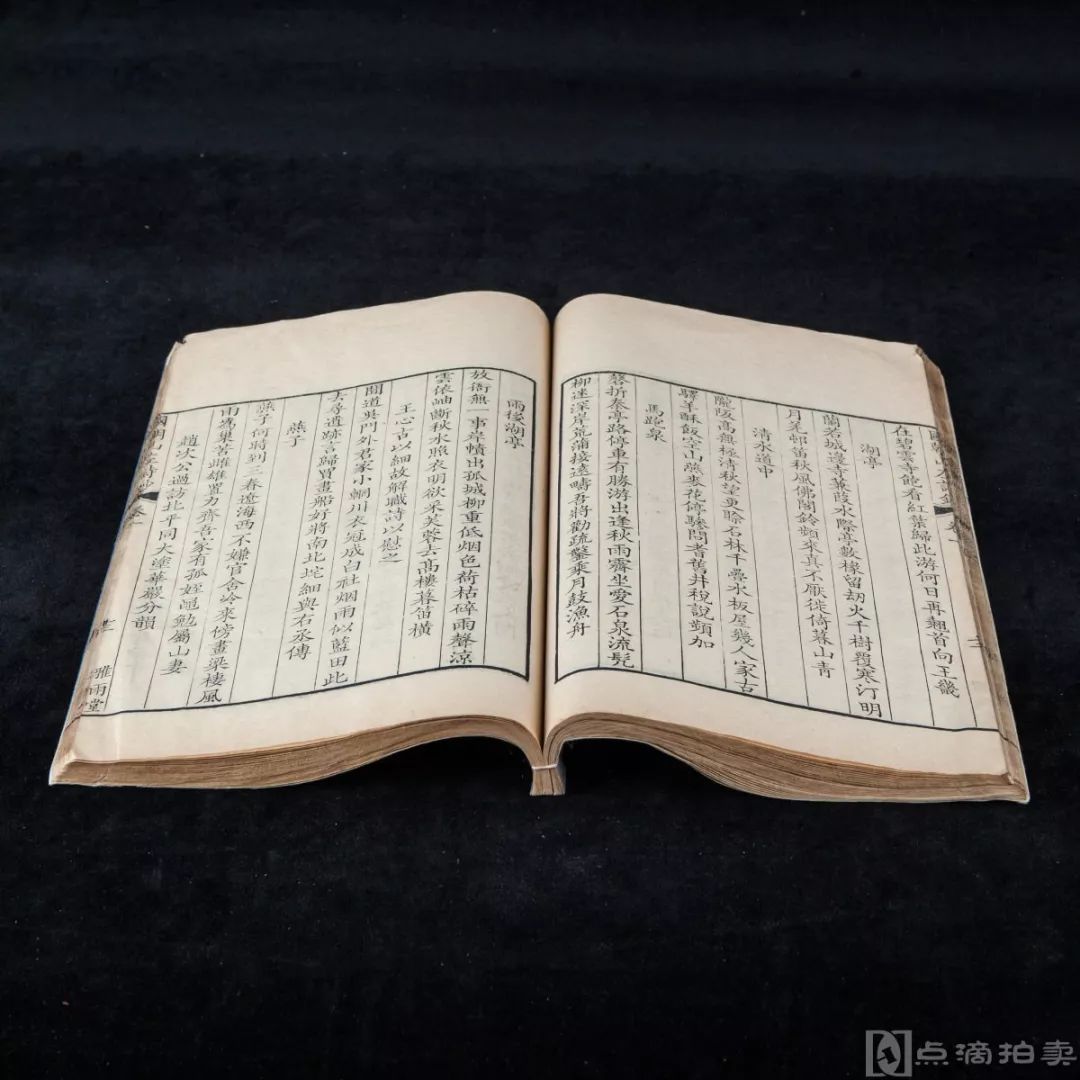 在碧雲寺飽看紅葉歸此游何日再翹首向王畿
湖亭
蘭若城邊寺蒹葭水際亭數椽留劫火千樹覆寒汀明
月笔邨笛秋風佛閣鈴頻來真不厭徙倚暮山青
清水道中
隴阪高無極清秋望更賒石林千疊水板屋幾人家古
驛羊酥飯空山燕麥花停驂問耆舊井稅說頻加
馬跑泉
磬折秦亭路停車有勝游出逢秋雨霽坐愛石泉流髡
柳迷深岸荒蒲接遠疇吾將勸疏鑿乘月鼓漁舟
雨後湖亭
放衙無一事岸幘出孤城柳重低烟色荷枯碎雨聲涼
雲依岫斷秋水照衣明欲采芙蓉去高樓暮笛橫
王心古以細故解職詩以慰之
聞道吳門外君家小輞川衣冠成白社烟雨似藍田此
去尋遺跡言歸買畫船好將南北垞細與右丞傳
燕子
燕子何時到三春遼海西不嫌官舍冷來傍畫梁棲風
雨為巢苦雌雄置力齊吾家有孤姪黽勉屬山妻
趙次公過訪北平同大塗華巖分韻
國朝山左詩鈔
卷
雅雨堂
点滴拍卖